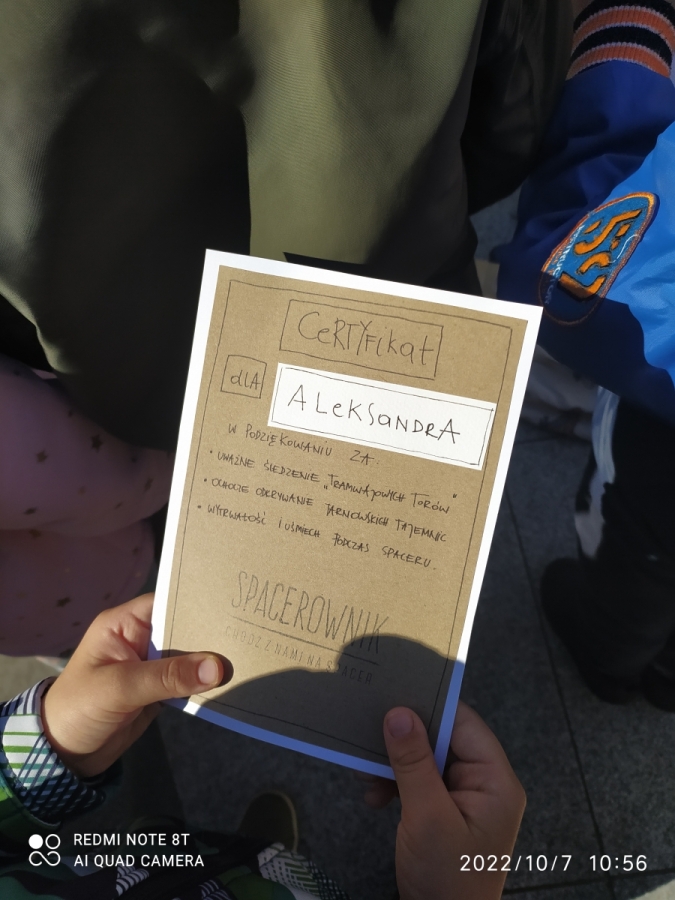 CeRTYFikat
dlA
ALekSandRA
W PODZIĘKOWANIU ZA:
• UWAŻNE ŚLEDZENIE „TRAMWAJOWYCH TORÓW"
• OCHOCZE ODKRYWANIE TARNOWSKICH TAJEMNIC
• WYTRWAŁOŚĆ I UŚMIECH PODCZAS SPACERU.
SPACEROWNIK
CHODŹ Z NAMI NA SPACER
REDMI NOTE 8T
AI QUAD CAMERA
2022/10/7 10:56